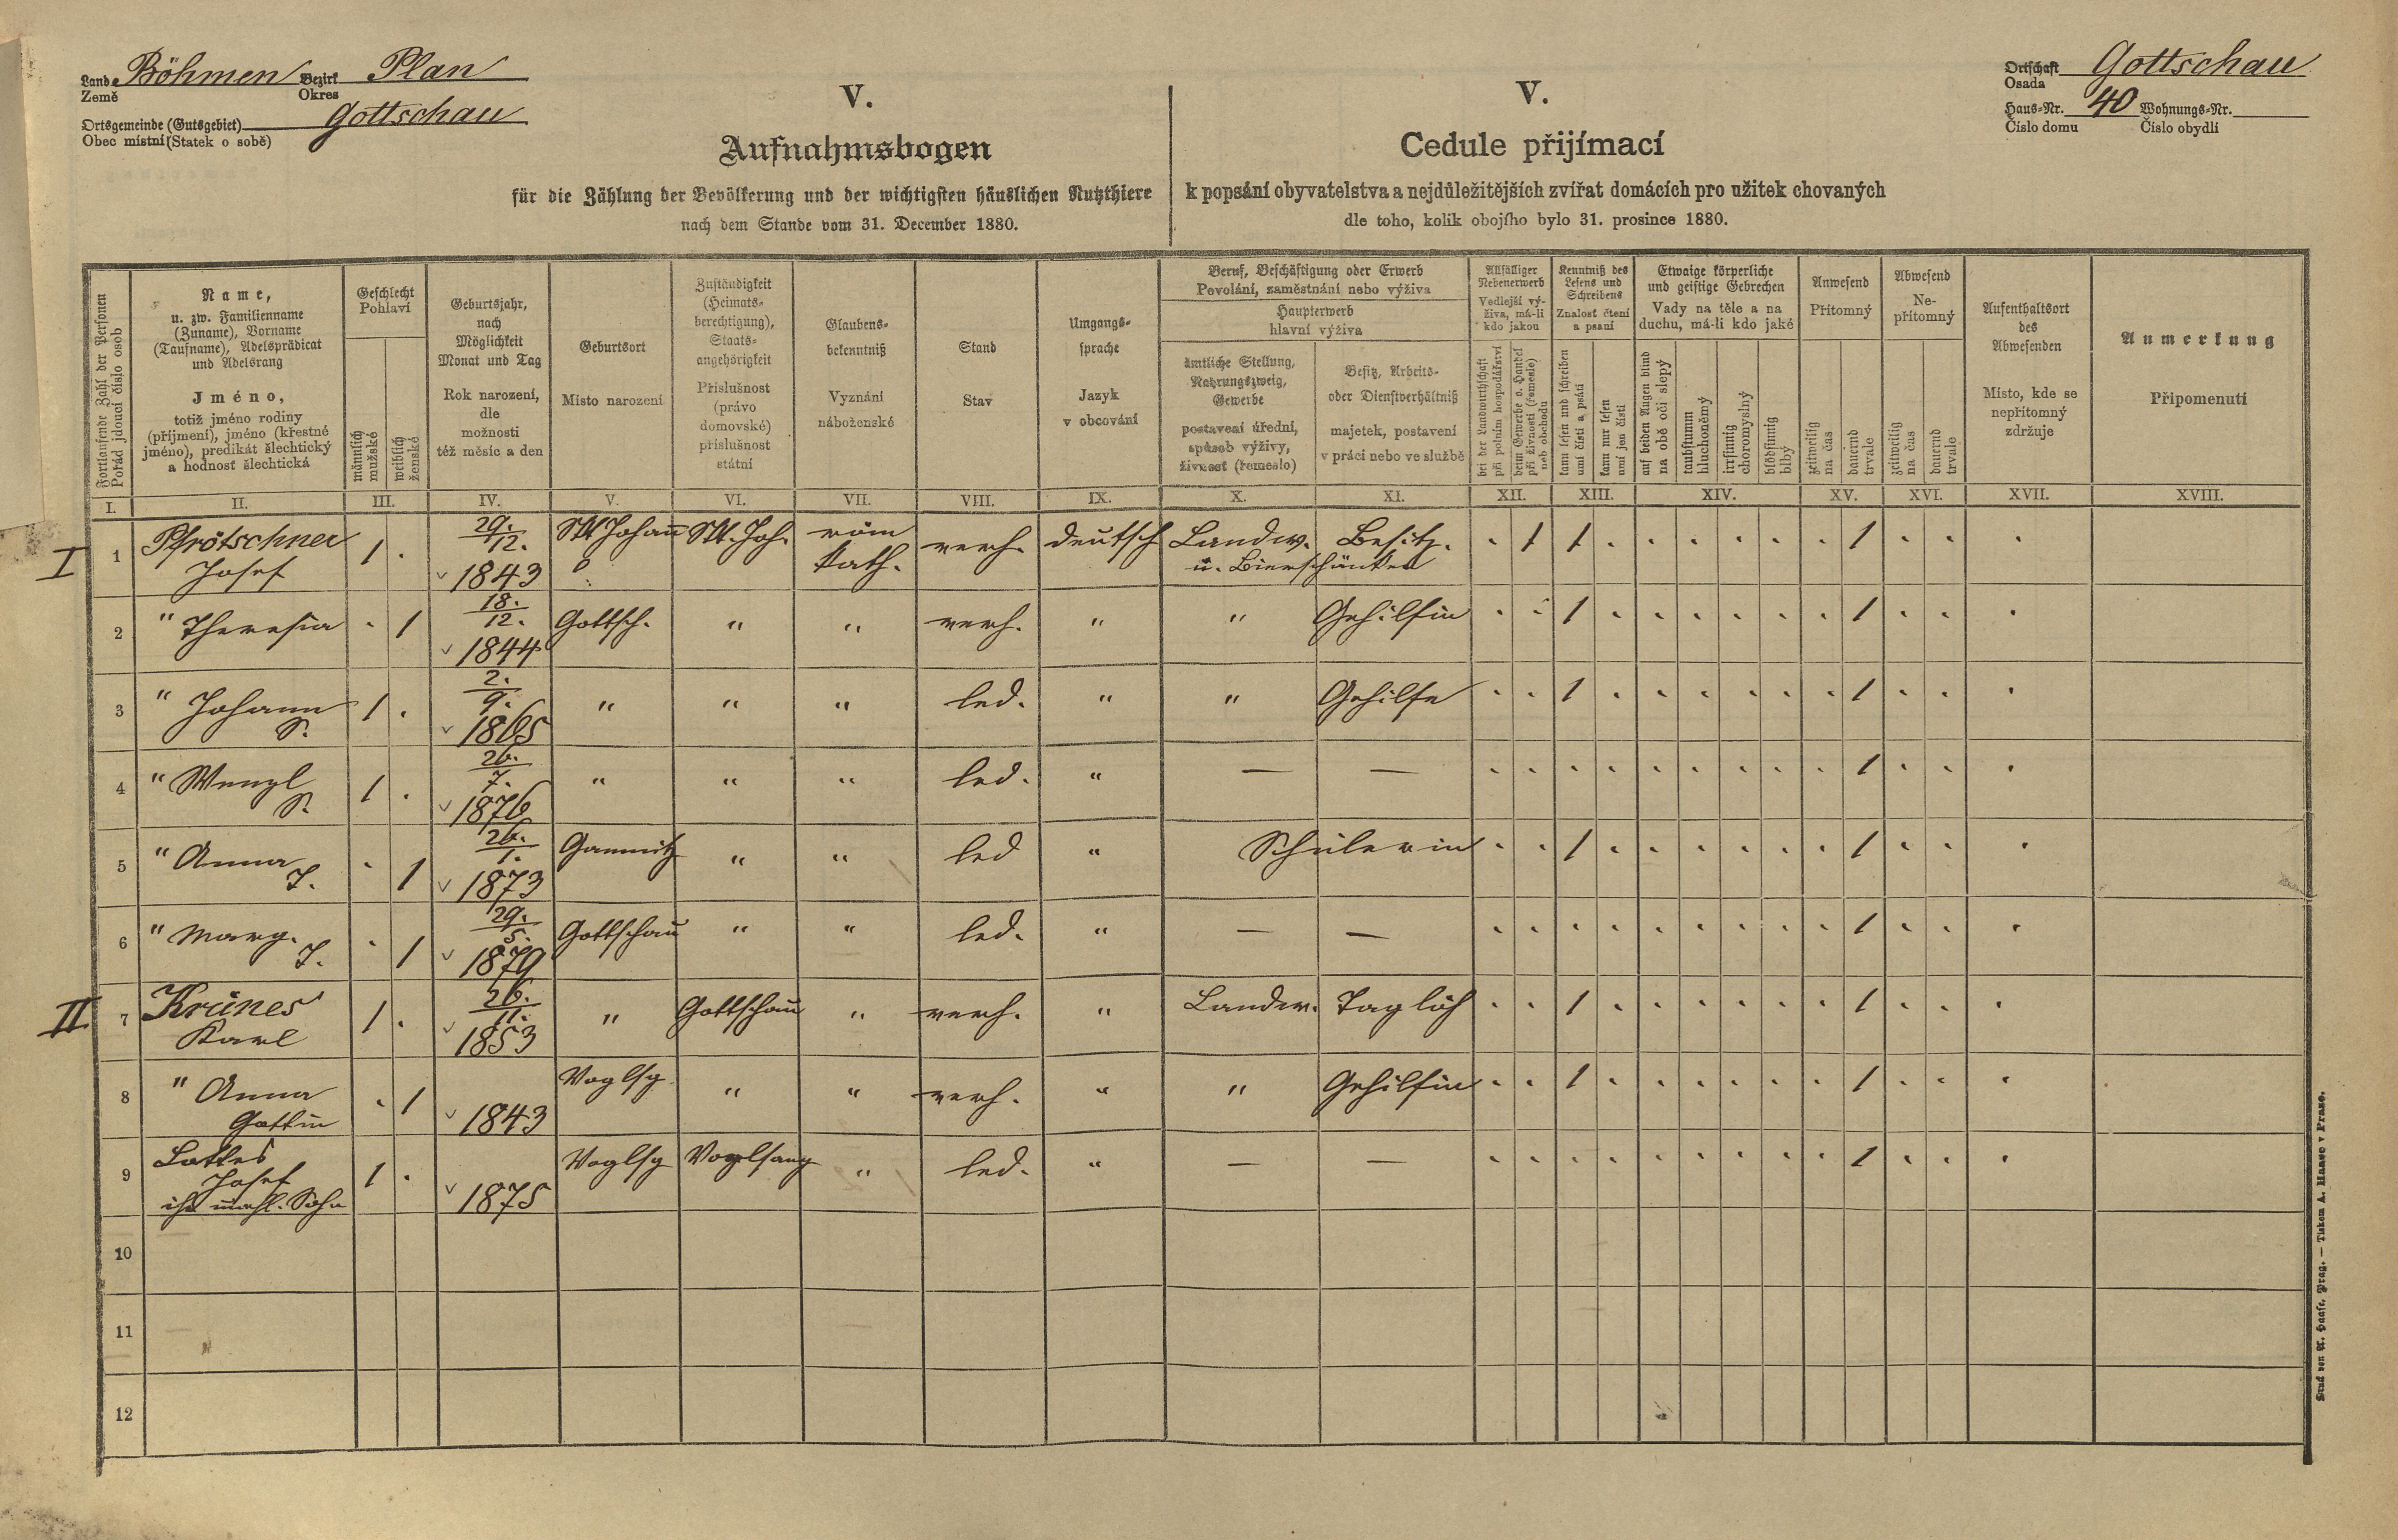 Land Böhmen Bezirk Plan
Země Okres
Ortsgemeinde (Gutsgebiet) Gottschau
Obec místní (Statek o sobě)
Ortschaft Gottschau
Osada
Haus-Nr. 40 Wohnungs-Nr.
Číslo domu Číslo obydlí
V.
Aufnahmsbogen
für die Zählung der Bevölkerung und der wichtigsten häuslichen Nutzthiere
nach dem Stande vom 31. December 1880.
V.
Cedule přijímací
k popsání obyvatelstva a nejdůležitějších zvířat domácích pro užitek chovaných
dle toho, kolik obojího bylo 31. prosince 1880.
Fortlaufende Zahl der Personen
Pořád jdoucí číslo osob
Name,
u. zw. Familienname
(Zuname), Vorname
(Taufname), Adelsprädicat
und Adelsrang
Jméno,
totiž jméno rodiny
(příjmení), jméno (křestné
jméno), predikát šlechtický
a hodnosť šlechtická
Geschlecht
Pohlaví
männlich
mužské
weiblich
ženské
Geburtsjahr,
nach
Möglichkeit
Monat und Tag
Rok narození,
dle
možnosti
též měsíc a den
Geburtsort
Místo narození
Zuständigkeit
(Heimats-
berechtigung),
Staats-
angehörigkeit
Příslušnost
(právo
domovské)
příslušnost
státní
Glaubens-
bekenntniß
Vyznání
náboženské
Stand
Stav
Umgangs-
sprache
Jazyk
v obcování
Beruf, Beschäftigung oder Erwerb
Povolání, zaměstnání nebo výživa
Haupterwerb
hlavní výživa
ämtliche Stellung,
Nahrungszweig,
Gewerbe
postavení úřední,
spůsob výživy,
živnosť (řemeslo)
Besitz, Arbeits-
oder Dienstverhältniß
majetek, postavení
v práci nebo ve službě
Allfälliger
Nebenerwerb
Vedlejší vý-
živa, má-li
kdo jakou
bei der Landwirthschaft
při polním hospodářství
beim Gewerbe o. Handel
při živnosti (řemesle)
neb obchodu
Kenntniß des
Lesens und
Schreibens
Znalosť čtení
a psaní
kann lesen und schreiben
umí čísti a psáti
kann nur lesen
umí jen čísti
Etwaige körperliche
und geistige Gebrechen
Vady na těle a na
duchu, má-li kdo jaké
auf beiden Augen blind
na obě oči slepý
taubstumm
hluchoněmý
irrsinnig
choromyslný
blödsinnig
blbý
Anwesend
Přítomný
zeitweilig
na čas
dauernd
trvale
Abwesend
Ne-
přítomný
zeitweilig
na čas
dauernd
trvale
Aufenthaltsort
des
Abwesenden
Místo, kde se
nepřítomný
zdržuje
Anmerkung
Připomenutí
I. II. III. IV. V. VI. VII. VIII. IX. X. XI. XII. XIII. XIV. XV. XVI. XVII. XVIII.
I 1 Pfrötschner Josef 1 . 29./12. 1843 St Johann St. Joh. röm kath. verh. deutsch Landw. Besitz. u. Bierschänker . 1 1 . . . . . . 1 . . .
2 " Theresia . 1 18./12. 1844 Gottsch. " " verh. " " Gehilfin . . 1 . . . . . . 1 . . .
3 " Johann S. 1 . 2./9. 1865 " " " led. " " Gehilfe . . 1 . . . . . . 1 . . .
4 " Wenzl S. 1 . 26./7. 1876 " " " led. " — — . . . . . . . . . 1 . . .
5 " Anna T. . 1 26./1. 1873 Gamnitz " " led " Schülerin . . 1 . . . . . . 1 . . .
6 " Marg. T. . 1 29./5. 1879 Gottschau " " led. " — — . . . . . . . . . 1 . . .
II 7 Krünes Karl 1 . 26./11. 1853 " Gottschau " verh. " Landw. Taglöh . . 1 . . . . . . 1 . . .
8 " Anna Gattin . 1 1843 Voglsg " " verh. " " Gehilfin . . 1 . . . . . . 1 . . .
9 Josef 1 . 1875 Voglsg Voglsang " led. " — — . . . . . . . . . 1 . . .
10
11
12
Druck von A. Haase, Prag. — Tiskem A. Haase v Praze.